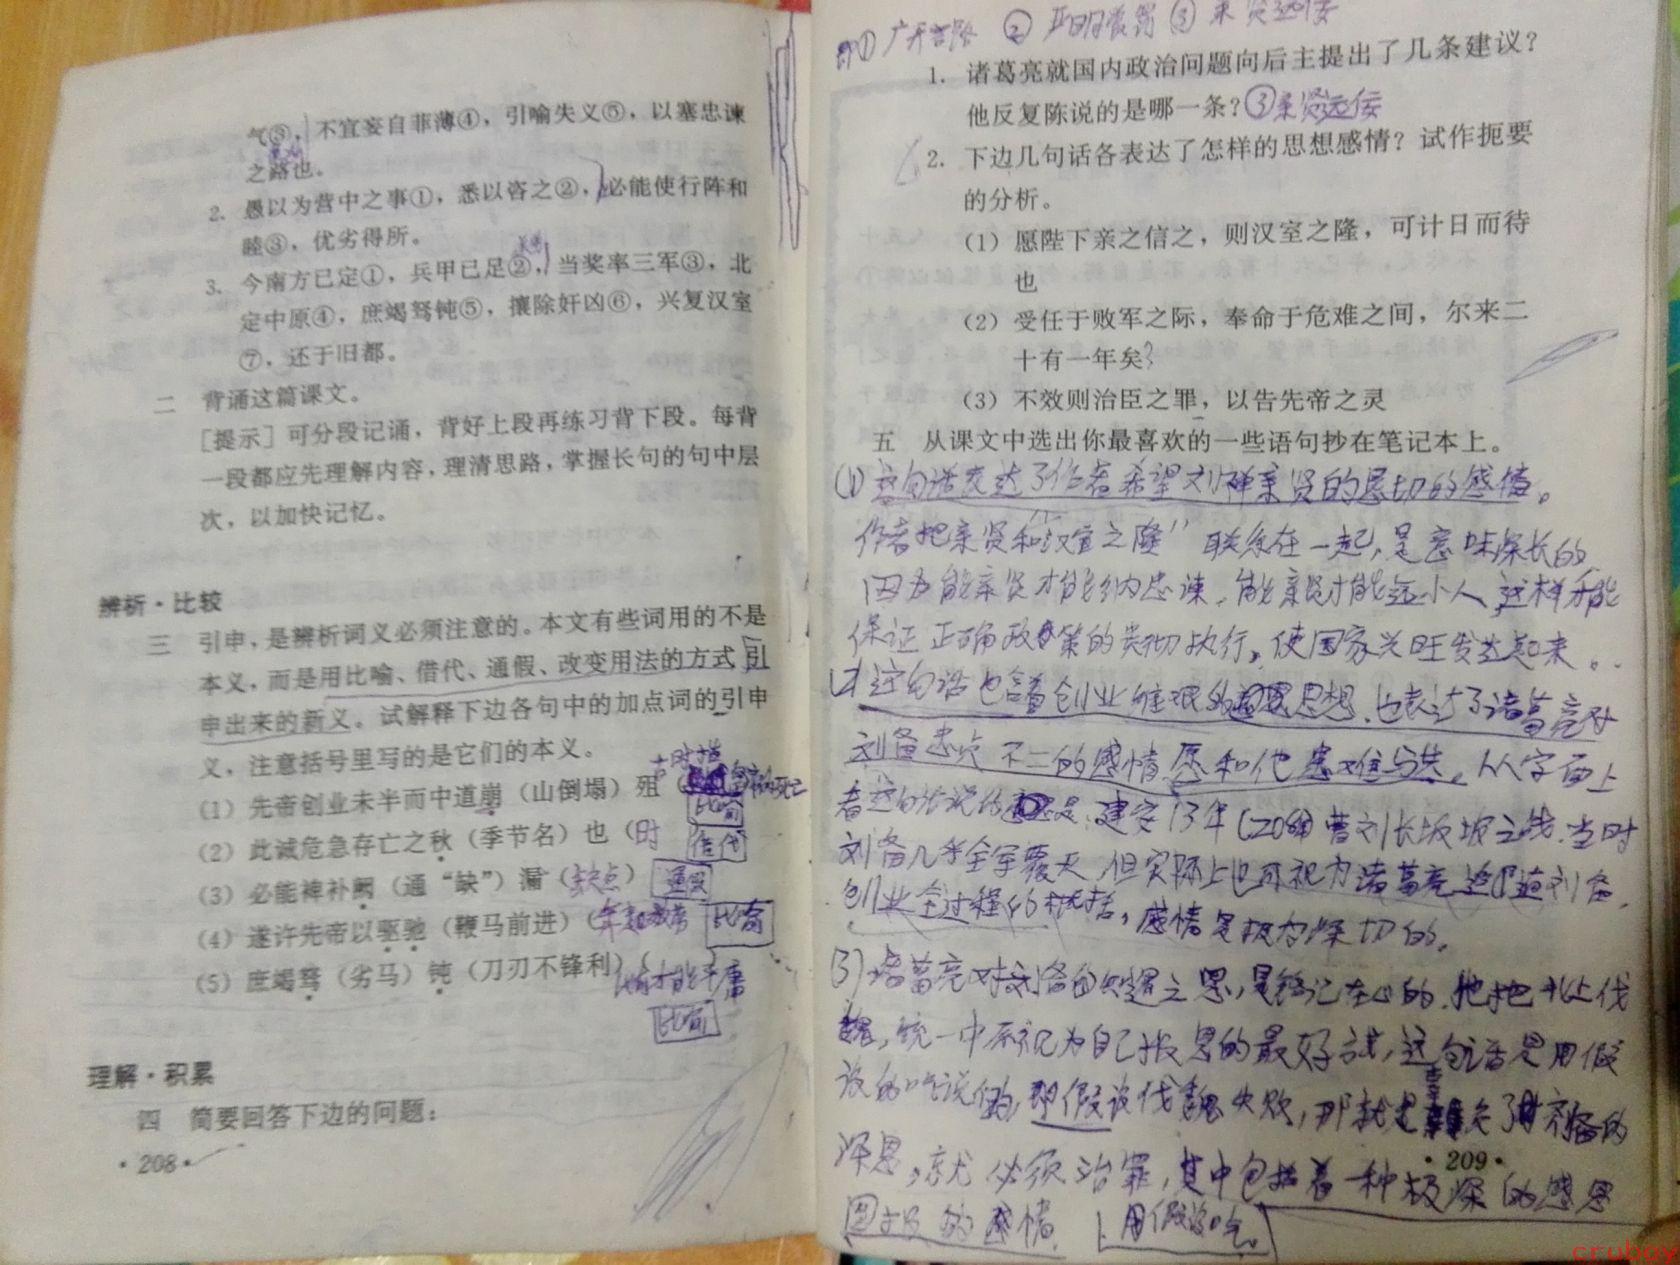 气③，不宜妄自菲薄④，引喻失义⑤，以塞忠谏
之路也。
2. 愚以为营中之事①，悉以咨之②，必能使行阵和
睦③，优劣得所。
3. 今南方已定①，兵甲已足②，当奖率三军③，北
定中原④，庶竭驽钝⑤，攘除奸凶⑥，兴复汉室
⑦，还于旧都。
二 背诵这篇课文。
［提示］可分段记诵，背好上段再练习背下段。每背
一段都应先理解内容，理清思路，掌握长句的句中层
次，以加快记忆。
辨析·比较
三 引申，是辨析词义必须注意的。本文有些词用的不是
本义，而是用比喻、借代、通假、改变用法的方式引
申出来的新义。试解释下边各句中的加点词的引申
义，注意括号里写的是它们的本义。
（1）先帝创业未半而中道崩（山倒塌）殂（
古时指 帝的死亡
比喻
（2）此诚危急存亡之秋（季节名）也（时
借代
（3）必能裨补阙（通“缺”）漏（缺点）
通假
（4）遂许先帝以驱驰（鞭马前进）（
比喻
（5）庶竭驽（劣马）钝（刀刃不锋利）（
才能平庸
比喻
理解·积累
四 简要回答下边的问题：
·208·
① 广开言路 ② 严明赏罚 ③ 亲贤远佞
1. 诸葛亮就国内政治问题向后主提出了几条建议？
他反复陈说的是哪一条？③亲贤远佞
2. 下边几句话各表达了怎样的思想感情？试作扼要
的分析。
（1）愿陛下亲之信之，则汉室之隆，可计日而待
也
（2）受任于败军之际，奉命于危难之间，尔来二
十有一年矣
（3）不效则治臣之罪，以告先帝之灵
五 从课文中选出你最喜欢的一些语句抄在笔记本上。
(1) 这句话表达了作者希望刘禅亲贤的恳切的感情。
作者把亲贤和“汉室之隆”联系在一起，是意味深长的
因为能亲贤才能纳忠谏，能亲贤才能远小人，这样才能
保证正确政策的贯彻执行。使国家兴旺发达起来。
(2) 这句话包含着创业维艰的思想，也表达了诸葛亮对
刘备忠贞不二的感情，愿和他患难与共。从字面上
看这句话说的是建安13年(208年)曹刘长坂坡之战，当时
刘备几乎全军覆灭，但实际上也可视为诸葛亮追随刘备
创业全过程的概括，感情是极为深切的。
(3) 诸葛亮对刘备的知遇之恩，是铭记在心的，他把北上伐
魏，统一中原视为自己报恩的最好方式，这句话是用假
设的口吻说的，即假设伐魏失败，那就是辜负了刘备的
深恩，就必须治罪，其中包括着一种极深的感恩
图报的感情 用假设口吻。
·209·
cruboy